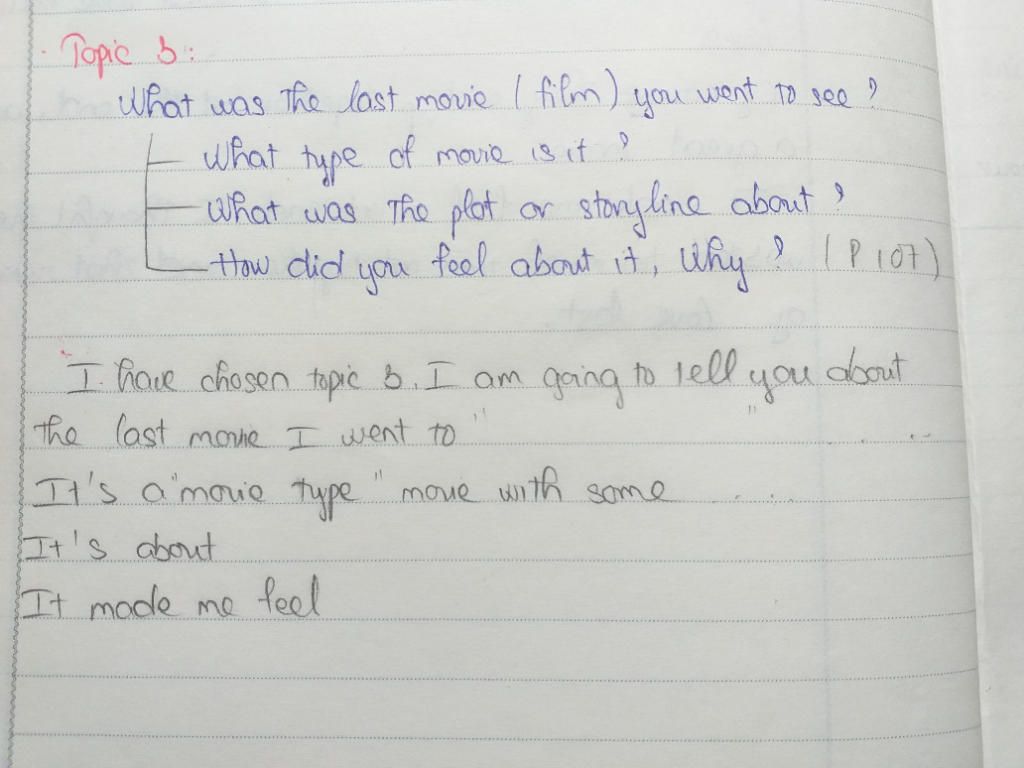 Topic 3:
What was The last movie (film) you went to see?
What type of movie is it?
What was The plot or storyline about?
How did you feel about it, Why? (P107)
I have chosen topic 3. I am going to tell you about
the last movie I went to " " . . ...
It's a "movie type" movie with some . . ...
It's about
It made me feel